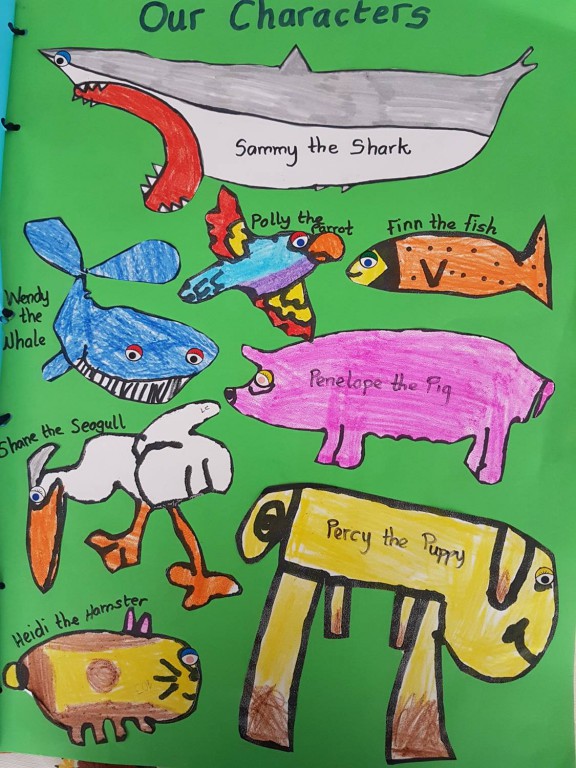 Our Characters
Sammy the Shark
Polly the
Parrot
Finn the fish
V
Wendy
the
Whale
Penelope the Pig
Shane the Seagull
Percy the Puppy
Heidi the Hamster